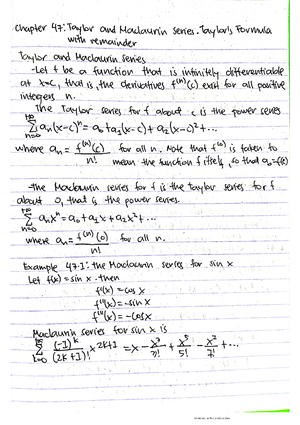 Chapter 47: Taylor and Maclaurin Series. Taylor's Formula
with remainder
Taylor and Maclaurin series
-Let f be a function that is infinitely differentiable
at x=c, that is, the derivatives f⁽ⁿ⁾(c) exist for all positive
integers n.
The Taylor series for f about c is the power series
+∞ Σ n=0 aₙ(x-c)ⁿ = a₀+a₁(x-c)+a₂(x-c)²+...
where aₙ = f⁽ⁿ⁾(c)/n! for all n. Note that f⁽⁰⁾ is taken to
mean the function f itself, so that a₀=f(c)
-the Maclaurin series for f is the taylor series for f
about 0, that is the power series.
+∞ Σ n=0 aₙxⁿ = a₀+a₁x+a₂x²+...
where aₙ = f⁽ⁿ⁾(0)/n! for all n.
Example 47.1: the Maclaurin series for sin x
Let f(x) = sin x. then
f'(x) = cos x
f''(x) = -sin x
f'''(x) = -cos x
Maclaurin series for sin x is
Σ k=0 (-1)ᵏ/(2k+1)! x²ᵏ⁺¹ = x - x³/3! + x⁵/5! - x⁷/7! + ...